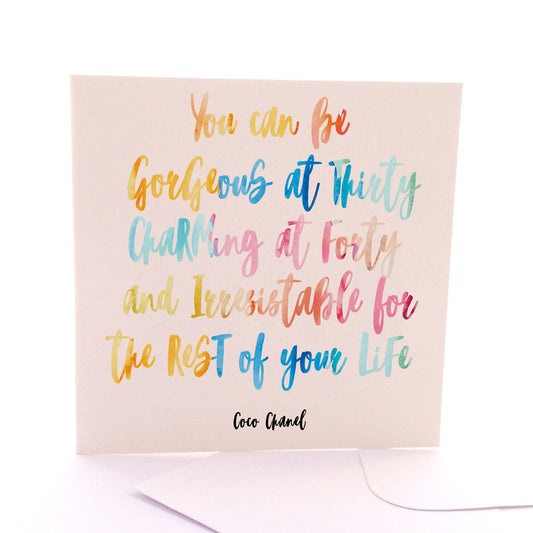 You can Be
GorGeous at Thirty
ChaRMing at Forty
and Irresistable for
the ReST of your LiFe
Coco Chanel